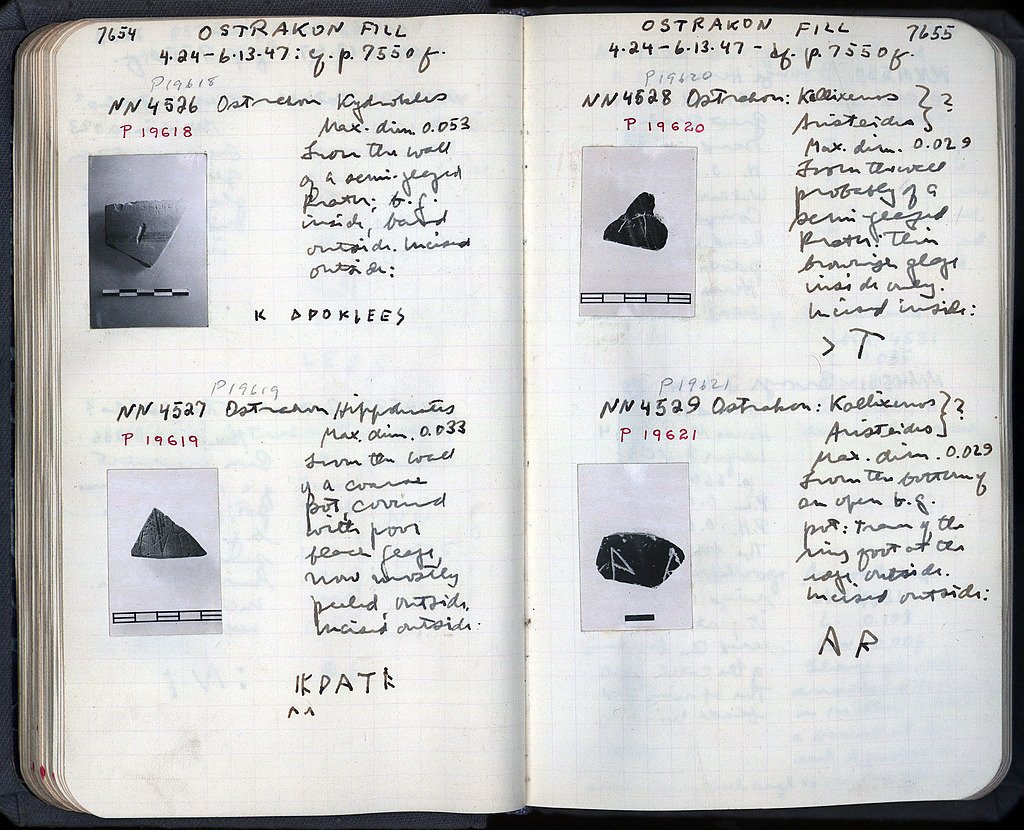 7654 OSTRAKON FILL
4·24-6·13·47: cf. p. 7550 f.
P19618
NN 4526 Ostrakon Kydrokles
P 19618
Max. dim. 0.053
From the wall
of a semi-glazed
Krater; b.g.
inside, band
outside. Incised
outside:
P19619
NN 4527 Ostrakon Hippokrates
P 19619
Max. dim. 0.033
From the wall
of a coarse
pot, covered
with poor
black glaze,
now mostly
peeled, outside.
Incised outside:
OSTRAKON FILL 7655
4·24-6·13·47 - cf. p. 7550 f.
P19620
NN 4528 Ostrakon: Kallixenos } ?
P 19620
Aristeides }
Max. dim. 0.029
From the wall
probably of a
semi-glazed
Krater: Thin
brownish glaze
inside only.
Incised inside:
> T
P19621
NN 4529 Ostrakon: Kallixenos } ?
P 19621
Aristeides }
Max. dim. 0.029
From the bottom of
an open b.g.
pot: trace of the
ring foot at the
edge outside.
Incised outside:
A R